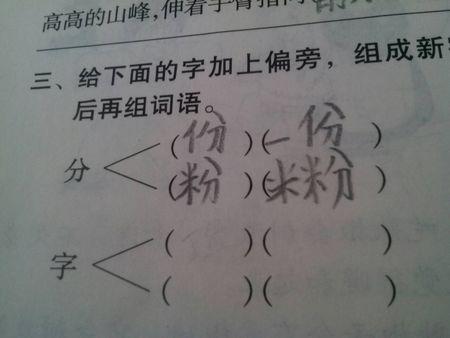 高高的山峰,伸着手臂指向
三、给下面的字加上偏旁,组成新
后再组词语。
分 (份)(一份)
(粉)(米粉)
字 ( )( )
( )( )